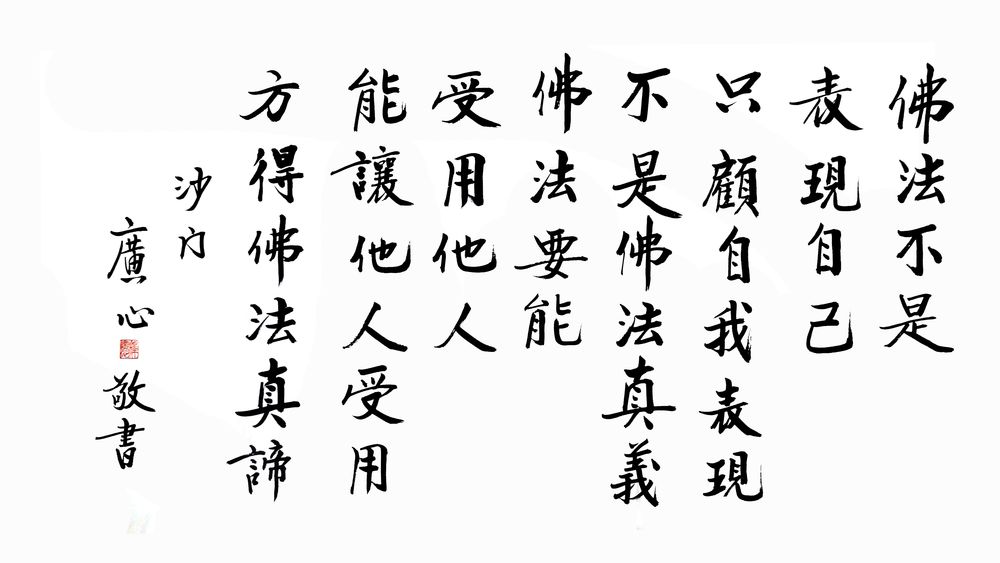 佛法不是
表現自己
只顧自我表現
不是佛法真義
佛法要能
受用他人
能讓他人受用
方得佛法真諦
沙门
廣心
敬書